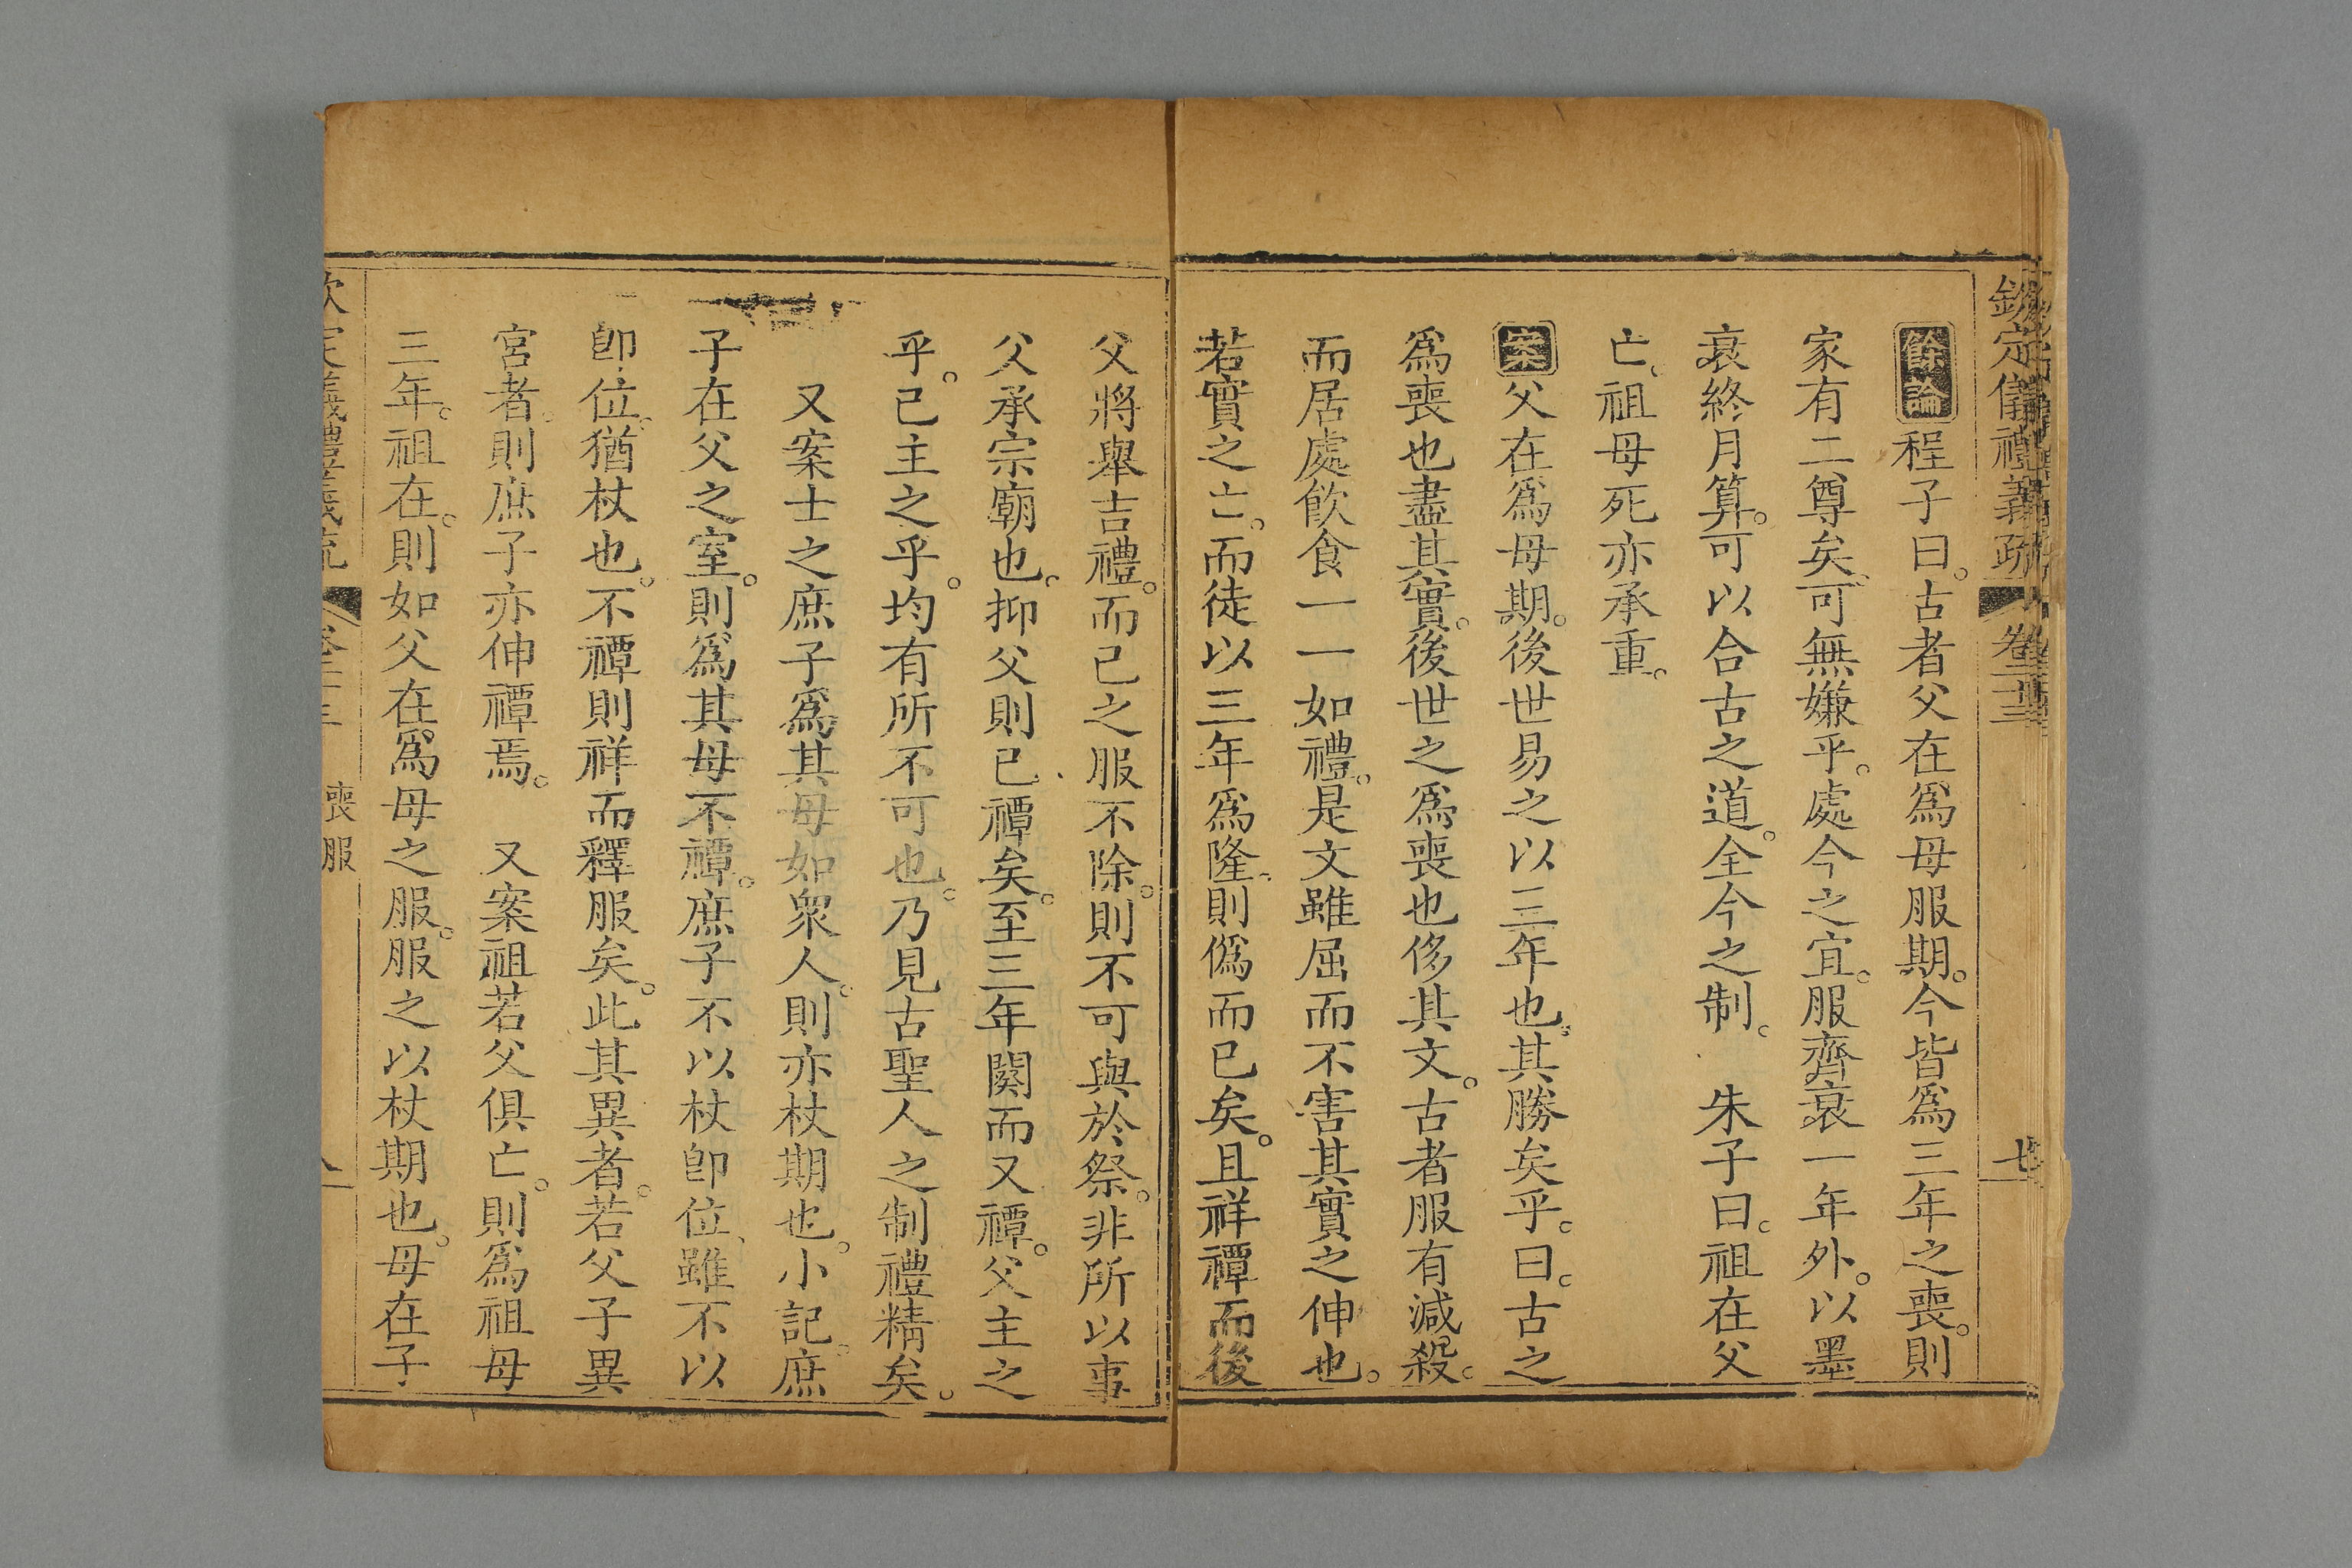 欽定儀禮義疏 卷二十三 七
餘論程子曰。古者父在爲母服期。今皆爲三年之喪。則
家有二尊矣。可無嫌乎。處今之宜。服齊衰一年外。以墨
衰終月算。可以合古之道。全今之制。 朱子曰。祖在父
亡。祖母死亦承重。
案父在爲母期。後世易之以三年也。其勝矣乎。曰。古之
爲喪也盡其實。後世之爲喪也侈其文。古者服有減殺。
而居處飲食一一如禮。是文雖屈而不害其實之伸也。
若實之亡。而徒以三年爲隆。則僞而已矣。且祥禫而後
父將舉吉禮。而已之服不除。則不可與於祭。非所以事
父承宗廟也。抑父則已禫矣。至三年闋而又禫。父主之
乎。已主之乎。均有所不可也。乃見古聖人之制禮精矣。
又案士之庶子爲其母如衆人。則亦杖期也。小記。庶
子在父之室。則爲其母不禫。庶子不以杖卽位。雖不以
卽位。猶杖也。不禫則祥而釋服矣。此其異者。若父子異
宮者。則庶子亦伸禫焉。 又案祖若父俱亡。則爲祖母
三年。祖在。則如父在爲母之服。服之以杖期也。母在子
欽定儀禮義疏 卷二十三 喪服